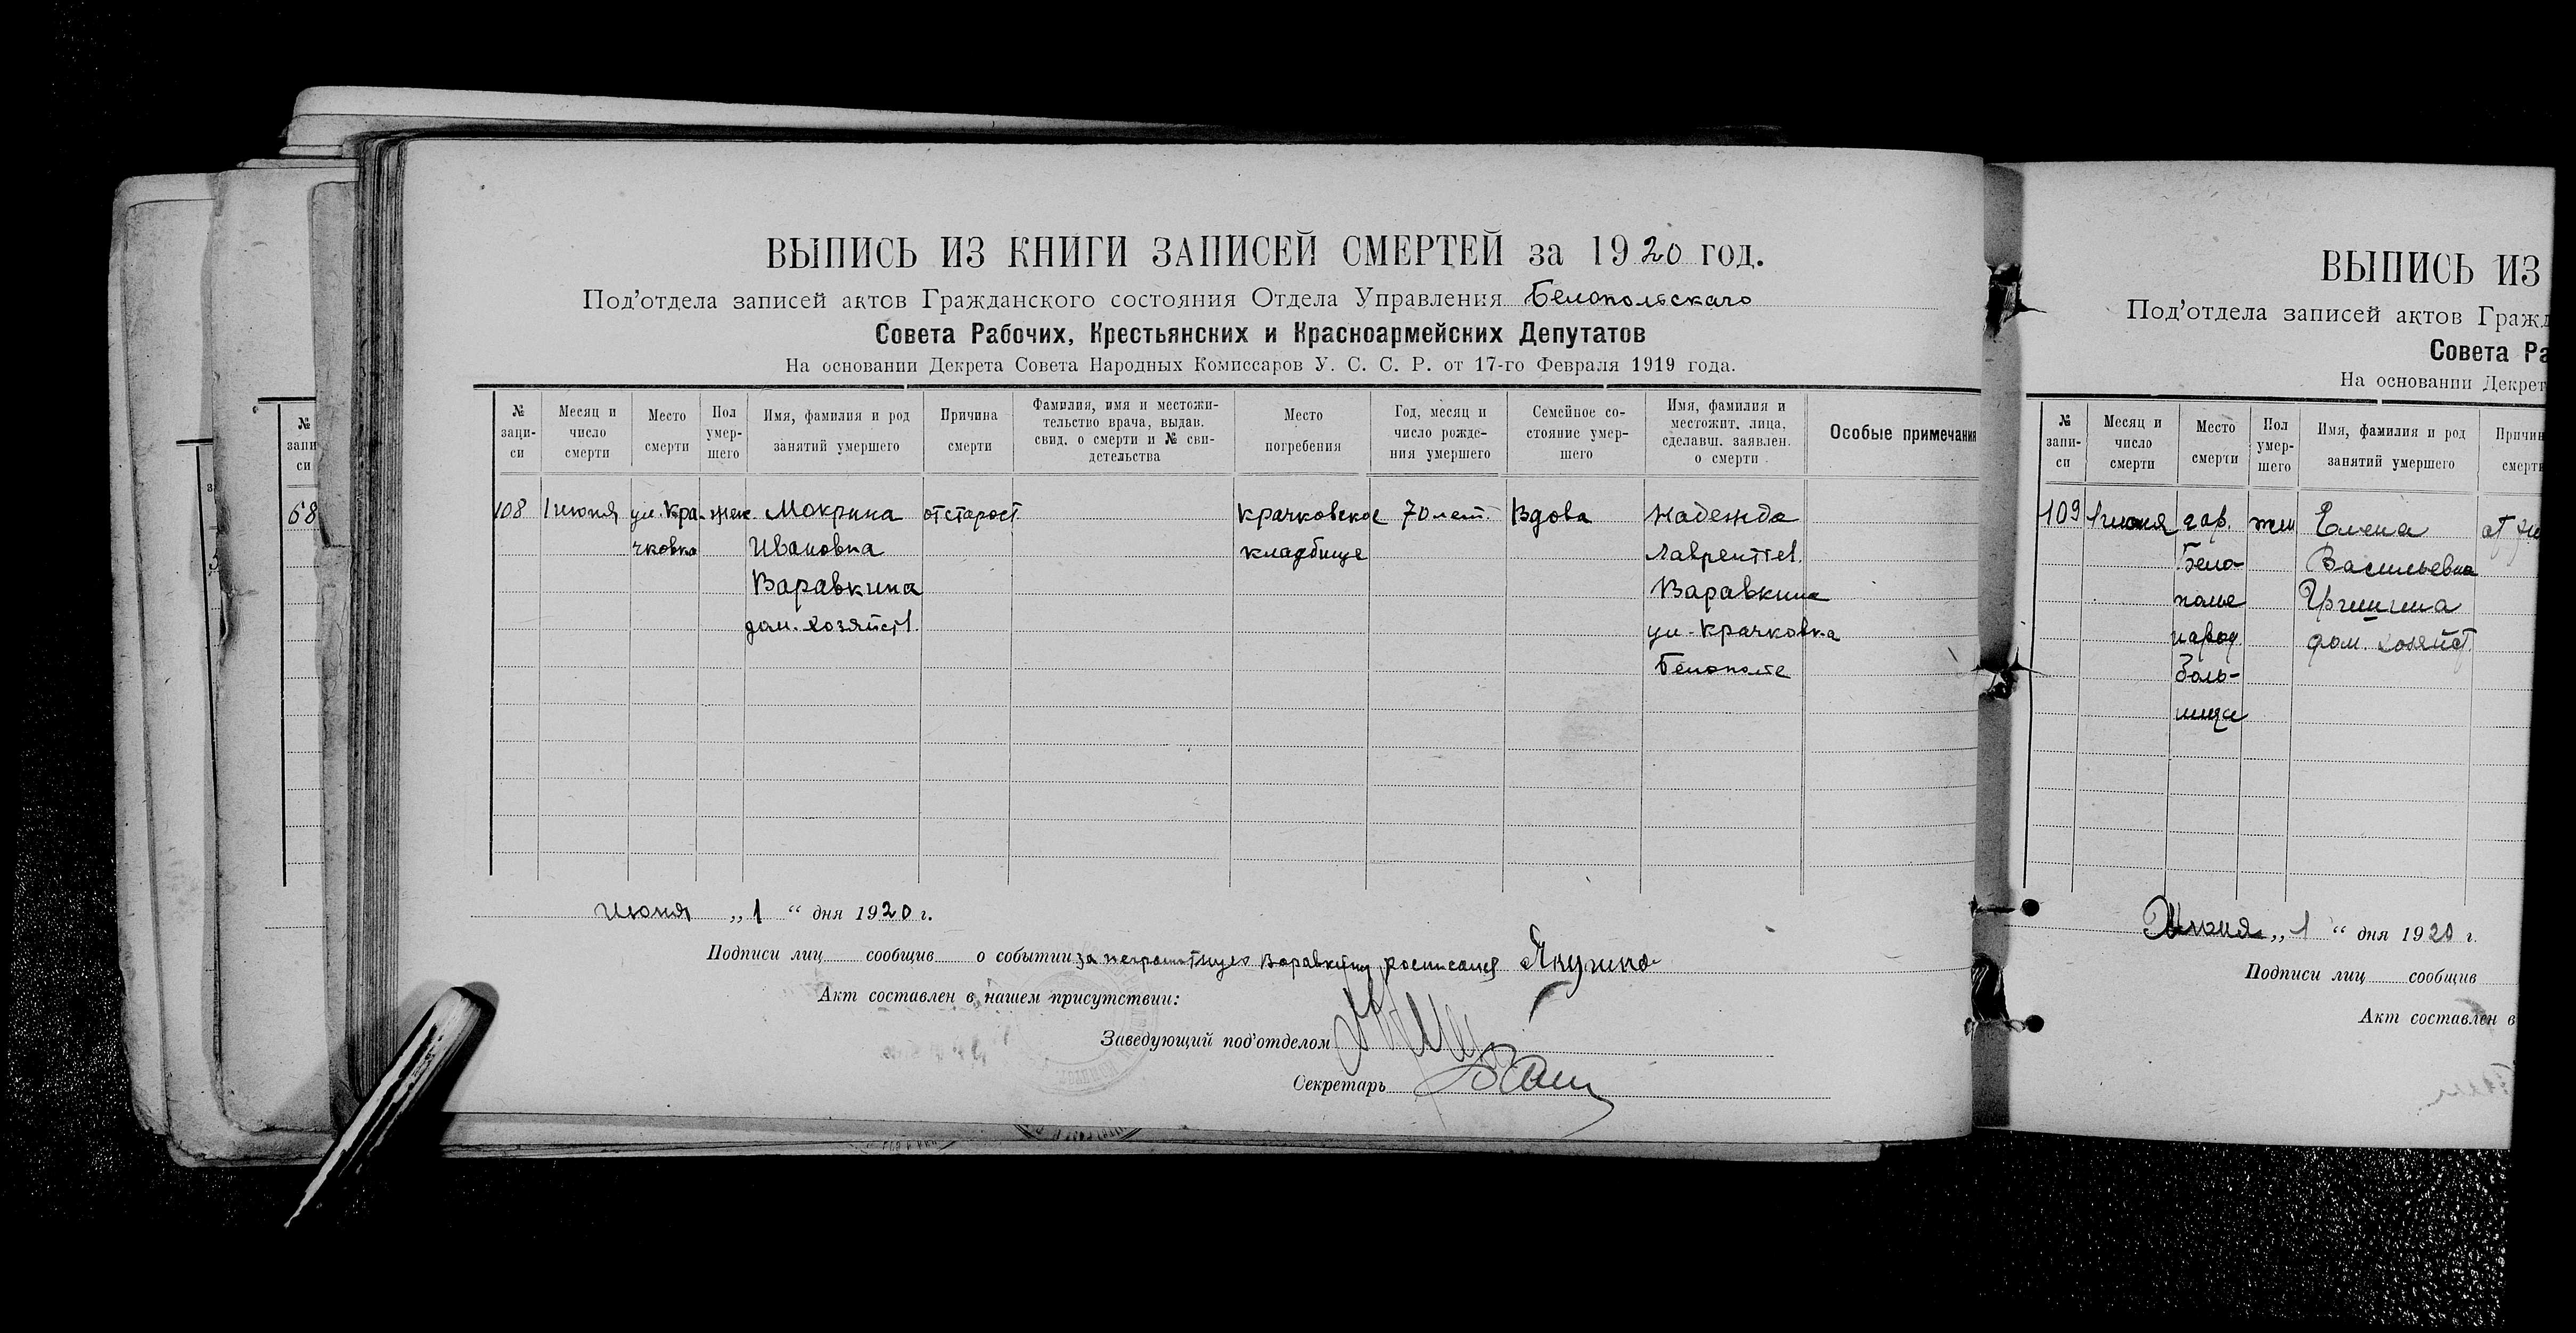 ВЫПИСЬ ИЗ КНИГИ ЗАПИСЕЙ СМЕРТЕЙ за 1920 год.
Под’отдела записей актов Гражданского состояния Отдела Управления Белопольскаго
Совета Рабочих, Крестьянских и Красноармейских Депутатов
На основании Декрета Совета Народных Комиссаров У. С. С. Р. от 17-го Февраля 1919 года.
№ записи
Месяц и число смерти
Место смерти
Пол умершего
Имя, фамилия и род занятий умершего
Причина смерти
Фамилия, имя и местожи-
тельство врача, выдав.
свид. о смерти и № сви-
детельства
Место погребения
Год, месяц и
число рожде-
ния умершего
Семейное со-
стояние умер-
шего
Имя, фамилия и
местожит. лица,
сделавш. заявлен.
о смерти
Особые примечания
108 1 июня ул. Кра- жен. Мокрина от старост крачковское 70 лет. Вдова Надежда
чковка Ивановна кладбище Лаврентев.
Варавкина Варавкина
дом. хозяйств. ул. Крачковка
Белополье
июня „ 1 “ дня 1920 г.
Подписи лиц сообщив о событии за неграмотную Варавкину росписался
Акт составлен в нашем присутствии:
Заведующий под’отделом
Секретарь
68
№
запи-
си
ВЫПИСЬ ИЗ
Под’отдела записей актов Гражд
Совета Ра
На основании Декрет
№ запи-
си
Месяц и
число
смерти
Место
смерти
Пол
умер-
шего
Имя, фамилия и род
занятий умершего
Причин
смерти
109 1 июня гор. жен Елена от
Бело- Васильевна
полье
народ. дом. хозяйст.
боль-
ница
Июня „ 1 “ дня 1920 г.
Подписи лиц сообщив
Акт составлен в